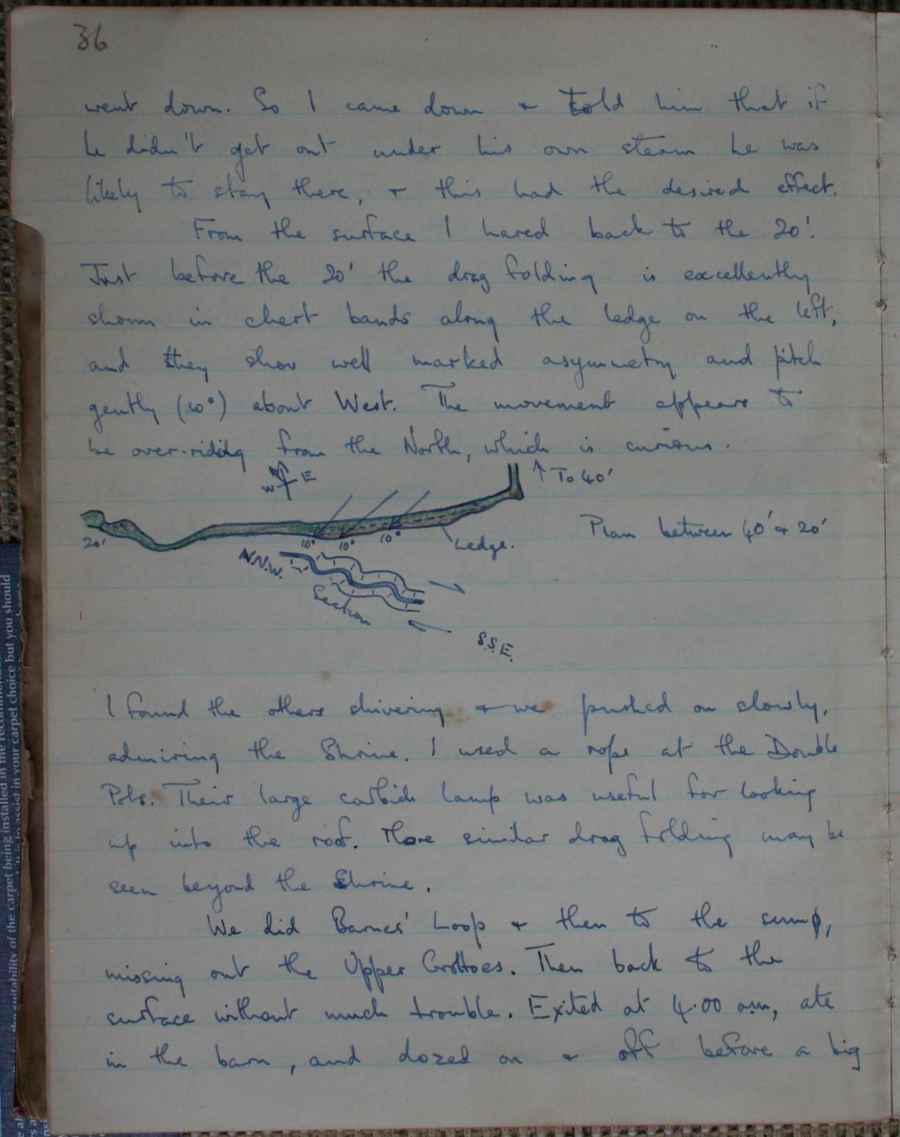 36
went down. So I came down & told him that if
he didn't get out under his own steam he was
likely to stay there, & this had the desired effect.
From the surface I hared back to the 20'.
Just before the 20' the drag folding is excellently
shown in chert bands along the ledge on the left,
and they show well marked asymmetry and pitch
gently (10°) about West. The movement appears to
be over-riding from the North, which is curious.
W E
↑ To 40'
20'
10° 10° 10°
Ledge.
Plan between 40' & 20'
N.N.W.
Section
S.S.E.
I found the others shivering & we pushed on slowly,
admiring the Shrine. I used a rope at the Double
Pots. Their large carbide lamp was useful for looking
up into the roof. More similar drag folding may be
seen beyond the Shrine.
We did Barnes' Loop & then to the sump,
missing out the Upper Grottoes. Then back to the
surface without much trouble. Exited at 4.00 am, ate
in the barn, and dozed on & off before a big
suitability of the carpet being installed in the
in your carpet choice but you should